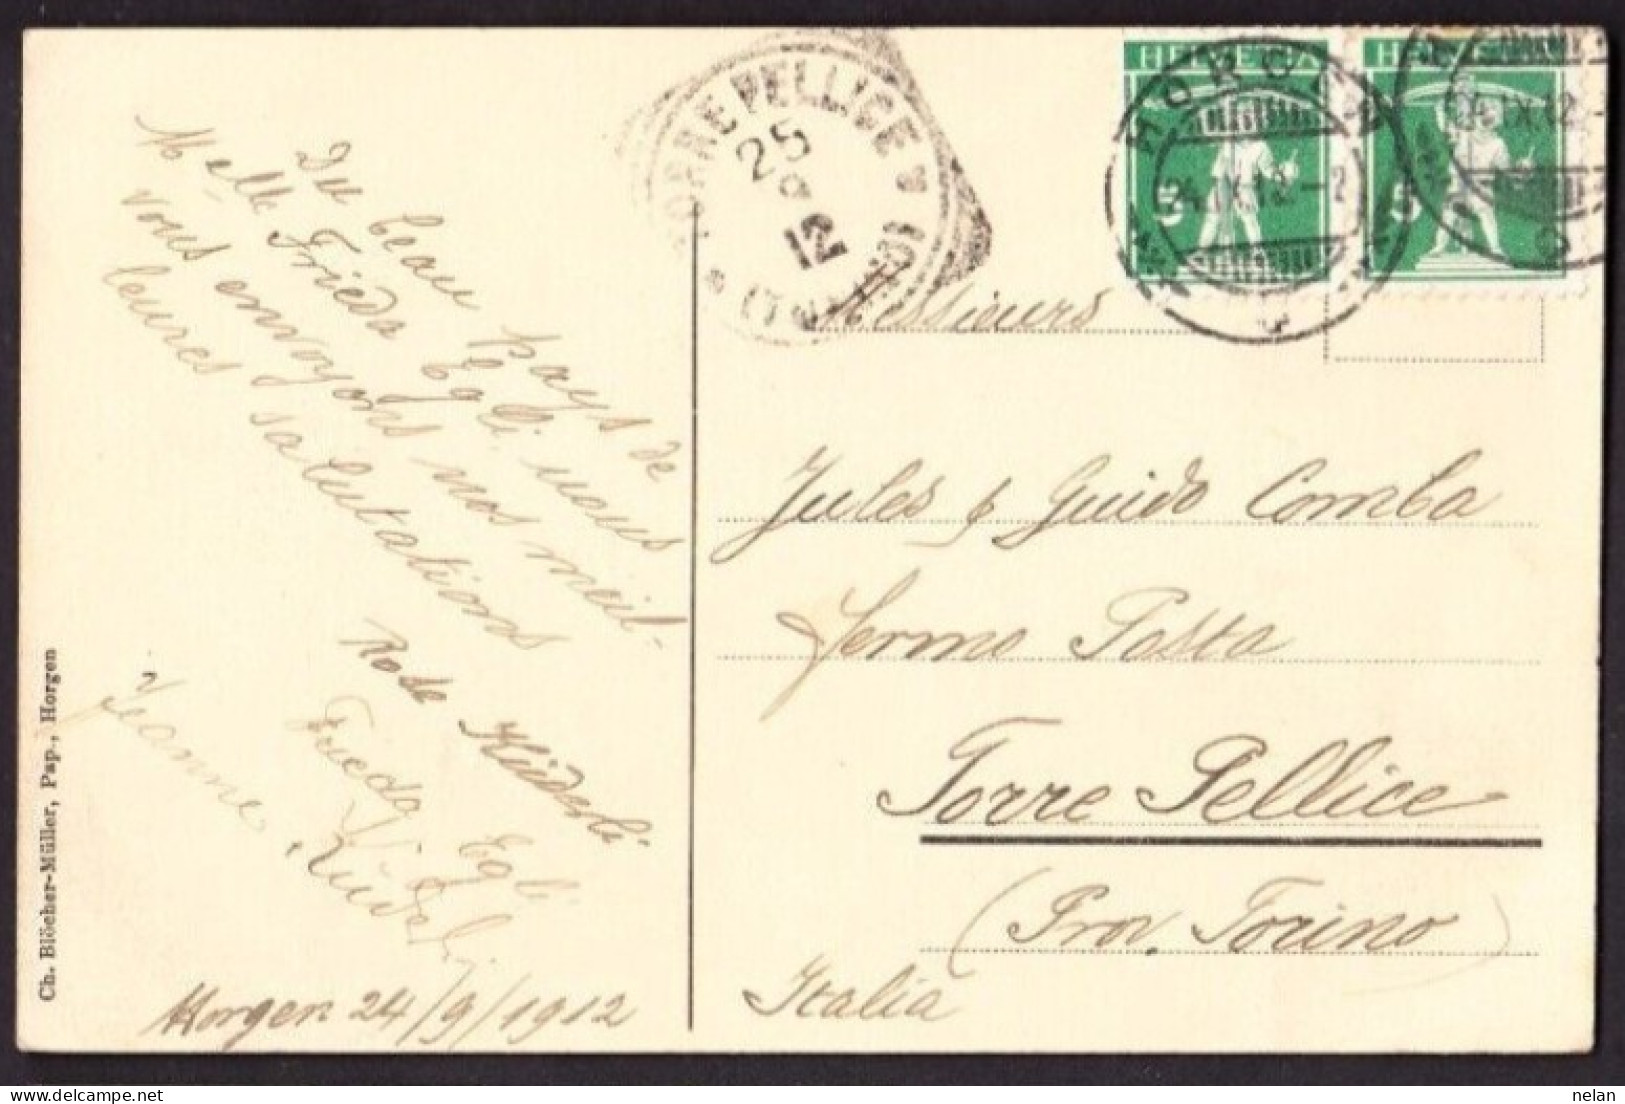 Du beau pays de
Melle Frieda Egli nous
vous envoyons nos meil-
leures salutations
Rosa Rüdseli
Frieda Egli
Jeanne Rüdseli
Horgen 24/9/1912
Ch. Blöcher-Müller, Pap., Horgen
TORRE PELLICE
(TORINO)
25
9
12
HELVETIA
5
HORGEN
24.IX.12
HELVETIA
5
24.IX.12
Messieurs
Jules & Guido Comba
Fermo Posta
Torre Pellice
(Prov. Torino)
Italia
nelan